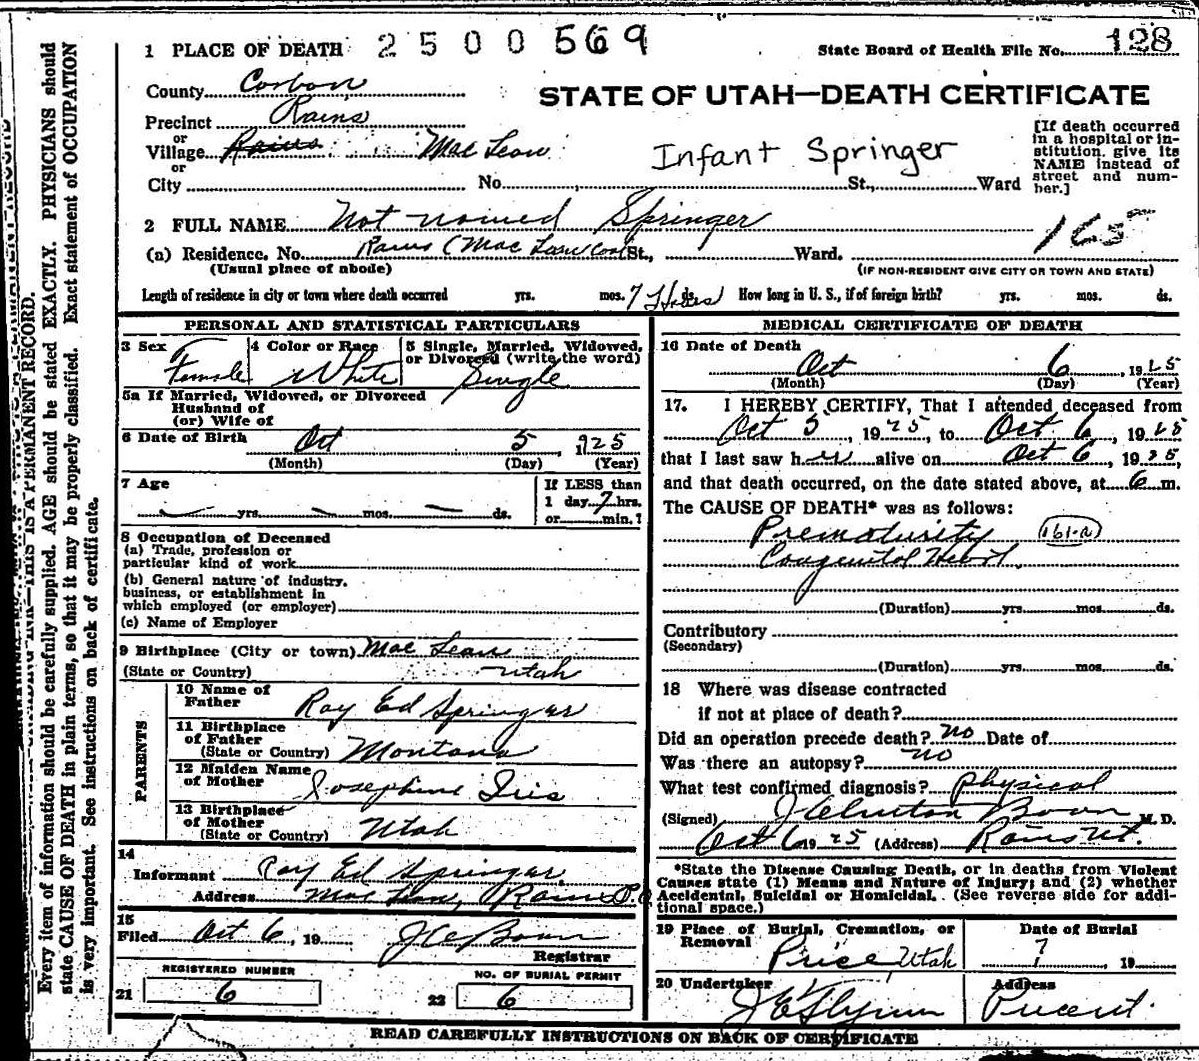 1 PLACE OF DEATH 2500569 State Board of Health File No. 128
County Carbon
STATE OF UTAH—DEATH CERTIFICATE
Precinct Rains
or
Village Rains Mac Lean
Infant Springer
[If death occurred in a hospital or in-stitution, give its NAME instead of street and num-ber.]
or
City No. St., Ward
2 FULL NAME Not named Springer
165
(a) Residence. No. Rains (Mac Lean Coal St., Ward.
(Usual place of abode) (IF NON-RESIDENT GIVE CITY OR TOWN AND STATE)
Length of residence in city or town where death occurred yrs. mos. 7 ds. How long in U. S., if of foreign birth? yrs. mos. ds.
PERSONAL AND STATISTICAL PARTICULARS
3 Sex 4 Color or Race 5 Single, Married, Widowed, or Divorced (write the word)
Female White Single
5a If Married, Widowed, or Divorced
Husband of
(or) Wife of
6 Date of Birth Oct 5, 1925
(Month) (Day) (Year)
7 Age If LESS than
1 day 7 hrs.
yrs. mos. ds. or min.?
8 Occupation of Deceased
(a) Trade, profession or
particular kind of work
(b) General nature of industry.
business, or establishment in
which employed (or employer)
(c) Name of Employer
9 Birthplace (City or town) Mac Lean
(State or Country) Utah
PARENTS
10 Name of Father Ray Ed Springer
11 Birthplace of Father (State or Country) Montana
12 Maiden Name of Mother Josephine Iris
13 Birthplace of Mother (State or Country) Utah
14
Informant Ray Ed Springer
Address Mac Lean, Rains P.O
15
Filed Oct 6, 19
Registrar
REGISTERED NUMBER NO. OF BURIAL PERMIT
21 6 22 6
MEDICAL CERTIFICATE OF DEATH
16 Date of Death
Oct 6, 1925
(Month) (Day) (Year)
17. I HEREBY CERTIFY, That I attended deceased from
Oct 5, 1925, to Oct 6, 1925
that I last saw her alive on Oct 6, 1925,
and that death occurred, on the date stated above, at 6 m.
The CAUSE OF DEATH* was as follows:
Prematurity 161-a
Congenital Heart
(Duration) yrs. mos. ds.
Contributory
(Secondary)
(Duration) yrs. mos. ds.
18 Where was disease contracted
if not at place of death?
Did an operation precede death? No Date of
Was there an autopsy? no
What test confirmed diagnosis? Physical
(Signed) M. D.
Oct 6 1925 (Address) Rains Ut.
*State the Disease Causing Death, or in deaths from Violent
Causes state (1) Means and Nature of Injury; and (2) whether
Accidental, Suicidal or Homicidal. (See reverse side for addi-
tional space.)
19 Place of Burial, Cremation, or Removal Date of Burial
Price, Utah 7, 19
20 Undertaker Address
J E Flynn
READ CAREFULLY INSTRUCTIONS ON BACK OF CERTIFICATE
Every item of information should be carefully supplied. AGE should be stated EXACTLY. PHYSICIANS should
state CAUSE OF DEATH in plain terms, so that it may be properly classified. Exact statement of OCCUPATION
is very important. See instructions on back of certificate.